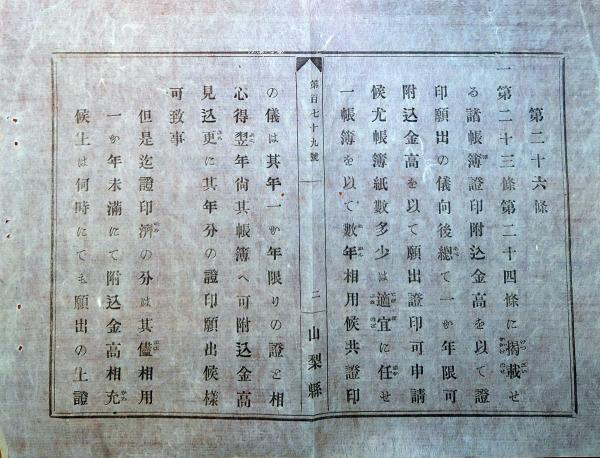 第二十六條
一第二十三條第二十四條に揭載せ
る諸帳簿證印附込金高を以て證
印願出の儀向後總て一か年限可
附込金高を以て願出證印可申請
候尤帳簿紙數多少は適宜に任せ
一帳簿を以て數年相用候共證印
第百七十九號
二
山梨縣
の儀は其年一か年限りの證と相
心得翌年尙其帳簿へ可附込金高
見込更に其年分の證印願出候樣
可致事
但是迄證印濟の分は其儘相用
一か年未滿にて附込金高相充
候上は何時にても願出の上證